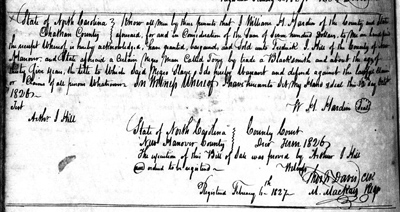 State of North Carolina } Know all Men by these presents that I William H. Hardin of the County and State
Chatham County } aforesaid, for and in Consideration of the Sum of Seven hundred dollars, to Me in hand paid
the receipt Whereof is hereby acknowledged, have granted, bargained, and Sold unto Frederick J. Hill of the County of New
Hanover and State aforesaid a Certain Negro Man Called by trade a Blacksmith and about the age of
Five years, the title to Which Said Negro Slave I do hereby Warrant and defend against the
Claims of all persons Whatsoever In Witness Whereof I have hereunto Set my Hand & Seal this day
1826
Test W H Hardin Seal
Arthur J Hill
State of North Carolina } County Court
New Hanover County } Term 1826
The execution of this Bill of Sale was proved by Arthur J Hill
and ordered to be registered Witness
Thos F Davis Clk
Registered February 6th 1827. M. MacKay